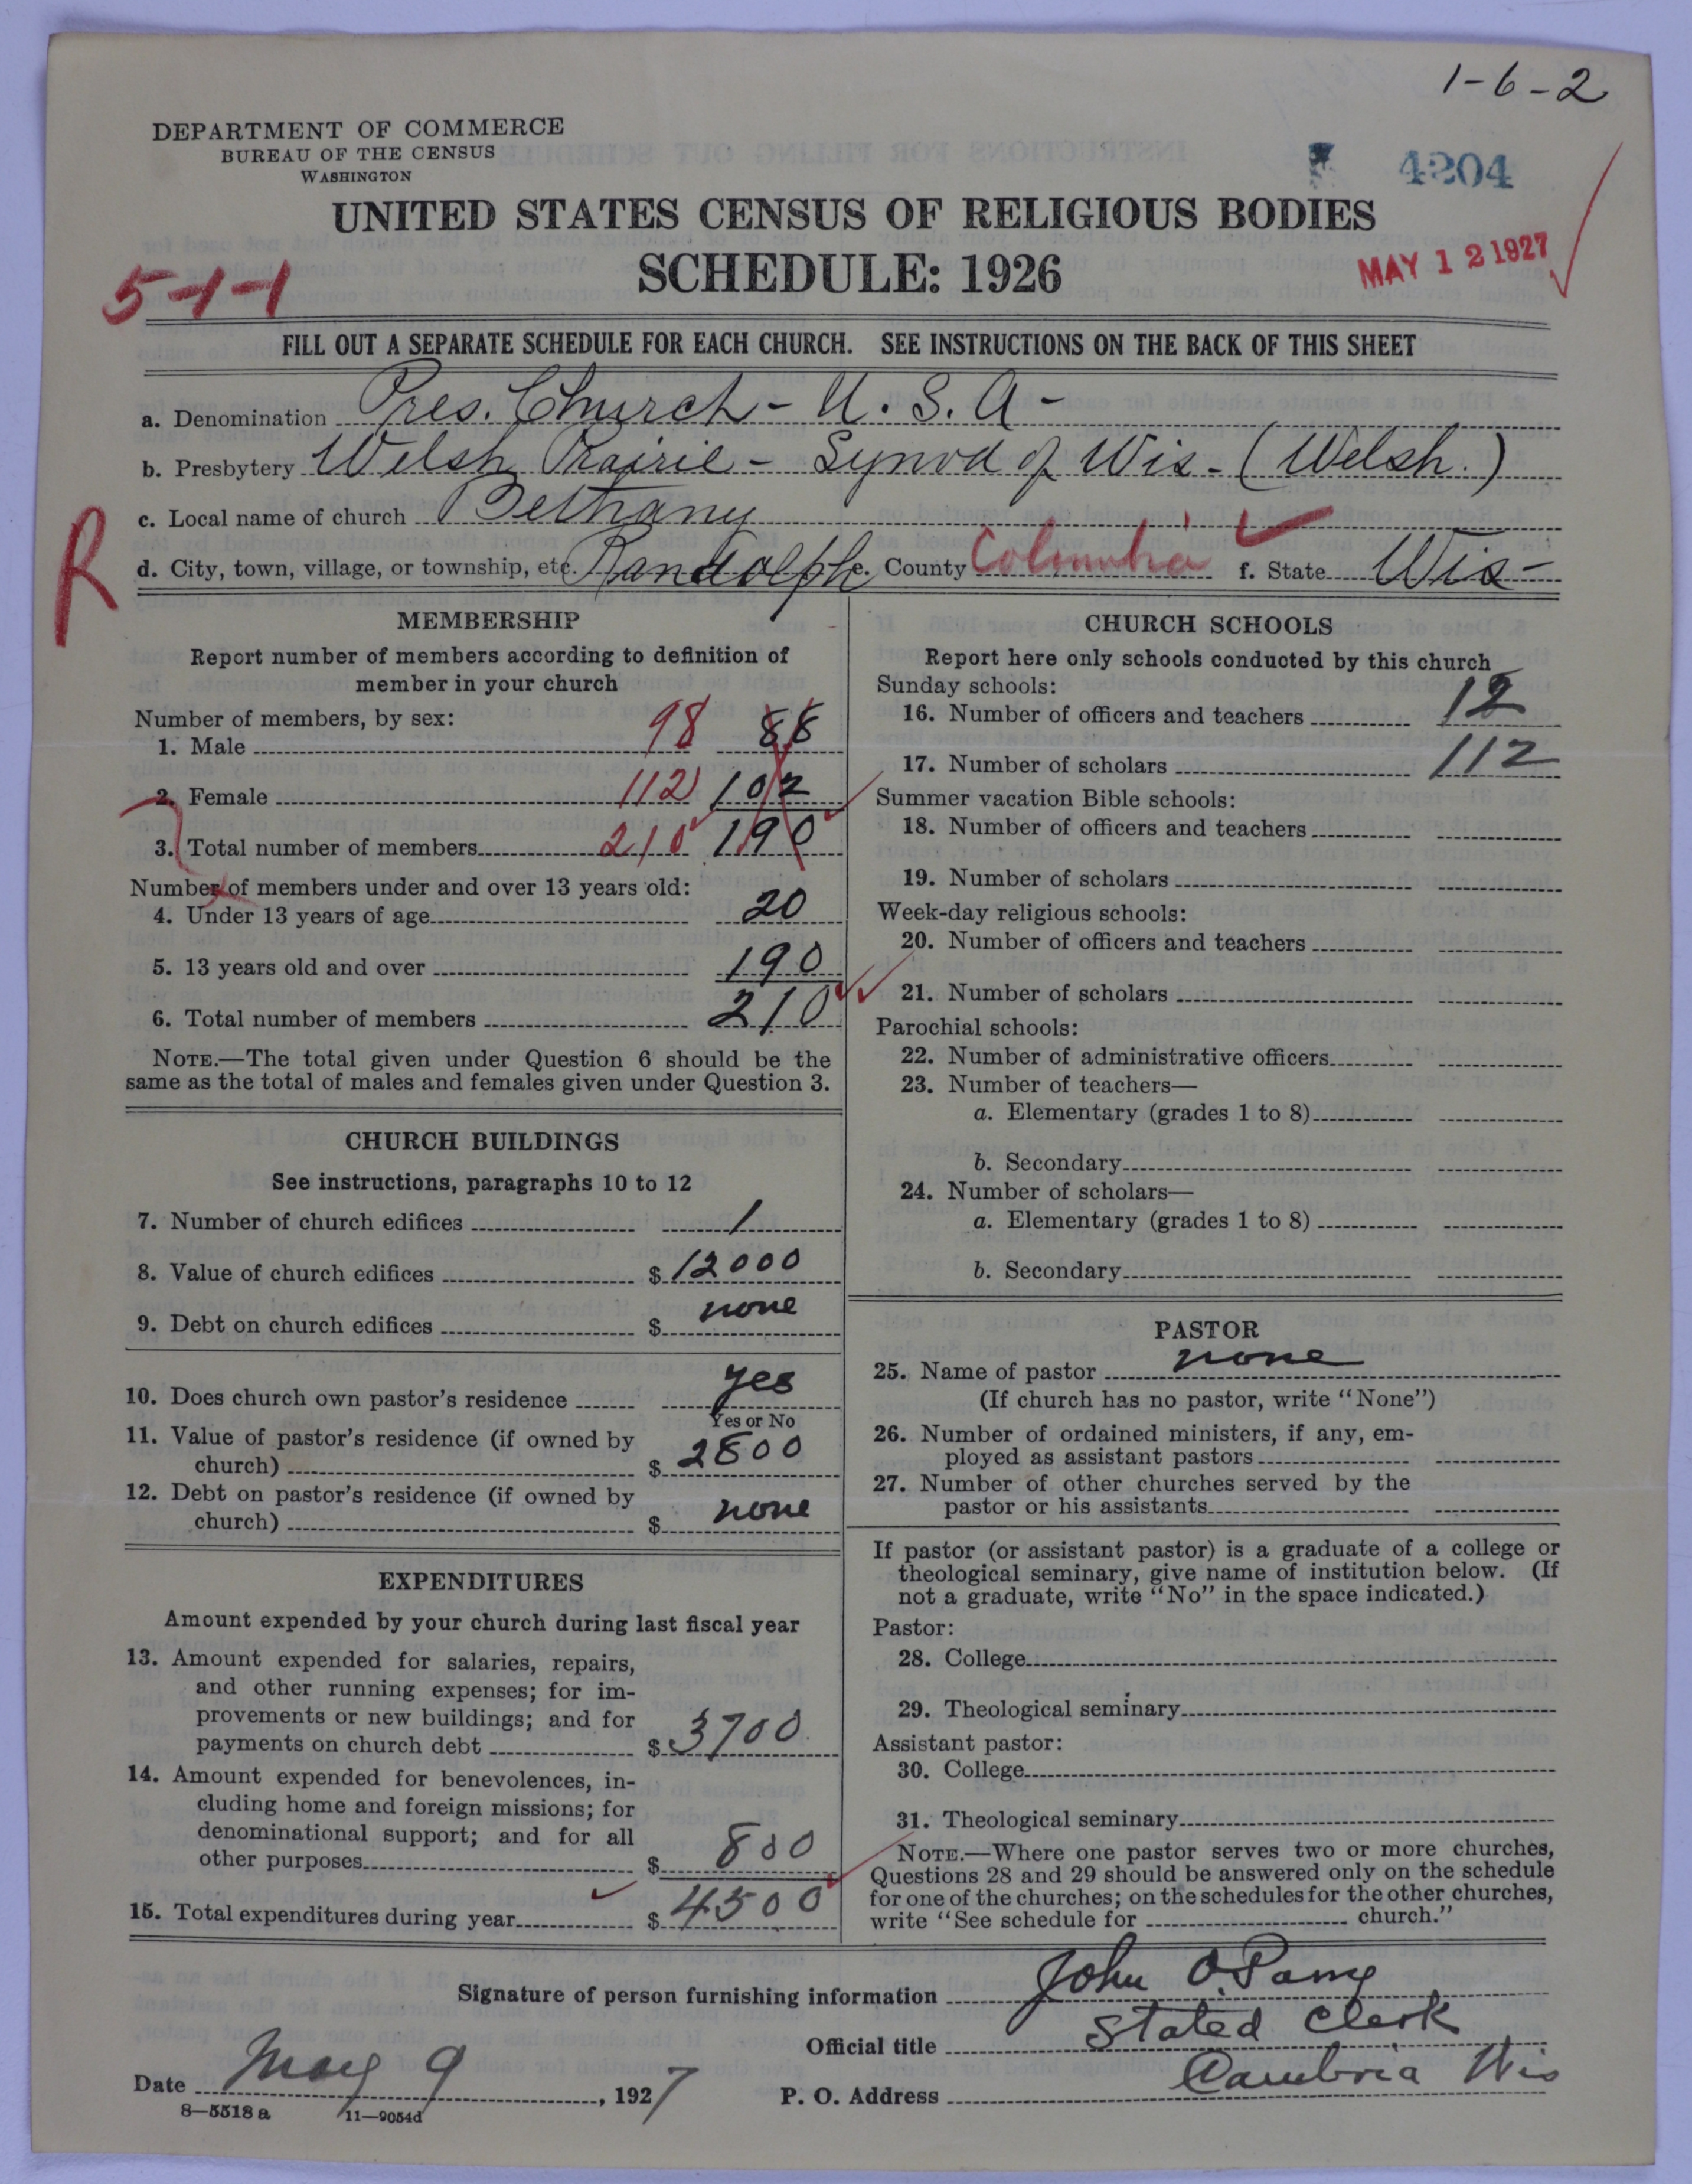 1-6-2
DEPARTMENT OF COMMERCE
BUREAU OF THE CENSUS
WASHINGTON
4204
UNITED STATES CENSUS OF RELIGIOUS BODIES
SCHEDULE: 1926
MAY 12 1927
5-1-1
FILL OUT A SEPARATE SCHEDULE FOR EACH CHURCH. SEE INSTRUCTIONS ON THE BACK OF THIS SHEET
a. Denomination Pres. Church - U.S.A -
b. Presbytery Welsh Prairie - Synod of Wis - (Welsh.)
c. Local name of church Bethany
R
d. City, town, village, or township, etc. Randolph e. County Columbia f. State Wis-
MEMBERSHIP
Report number of members according to definition of
member in your church
Number of members, by sex:
1. Male 98 88
2. Female 112 102
3. Total number of members 210 190
Number of members under and over 13 years old:
4. Under 13 years of age 20
5. 13 years old and over 190
6. Total number of members 210
NOTE.—The total given under Question 6 should be the
same as the total of males and females given under Question 3.
CHURCH BUILDINGS
See instructions, paragraphs 10 to 12
7. Number of church edifices 1
8. Value of church edifices $12000
9. Debt on church edifices $ none
10. Does church own pastor's residence yes
Yes or No
11. Value of pastor's residence (if owned by
church) $2800
12. Debt on pastor's residence (if owned by
church) $ none
EXPENDITURES
Amount expended by your church during last fiscal year
13. Amount expended for salaries, repairs,
and other running expenses; for im-
provements or new buildings; and for
payments on church debt $3700
14. Amount expended for benevolences, in-
cluding home and foreign missions; for
denominational support; and for all
other purposes $800
15. Total expenditures during year $4500
CHURCH SCHOOLS
Report here only schools conducted by this church
Sunday schools:
16. Number of officers and teachers 12
17. Number of scholars 112
Summer vacation Bible schools:
18. Number of officers and teachers
19. Number of scholars
Week-day religious schools:
20. Number of officers and teachers
21. Number of scholars
Parochial schools:
22. Number of administrative officers
23. Number of teachers—
a. Elementary (grades 1 to 8)
b. Secondary
24. Number of scholars—
a. Elementary (grades 1 to 8)
b. Secondary
PASTOR
25. Name of pastor none
(If church has no pastor, write "None")
26. Number of ordained ministers, if any, em-
ployed as assistant pastors
27. Number of other churches served by the
pastor or his assistants
If pastor (or assistant pastor) is a graduate of a college or
theological seminary, give name of institution below. (If
not a graduate, write "No" in the space indicated.)
Pastor:
28. College
29. Theological seminary
Assistant pastor:
30. College
31. Theological seminary
NOTE.—Where one pastor serves two or more churches,
Questions 28 and 29 should be answered only on the schedule
for one of the churches; on the schedules for the other churches,
write "See schedule for church."
Signature of person furnishing information John O.
Official title Stated Clerk
Date May 9, 1927 P. O. Address Cambria Wis
8—5518 a 11—9054d